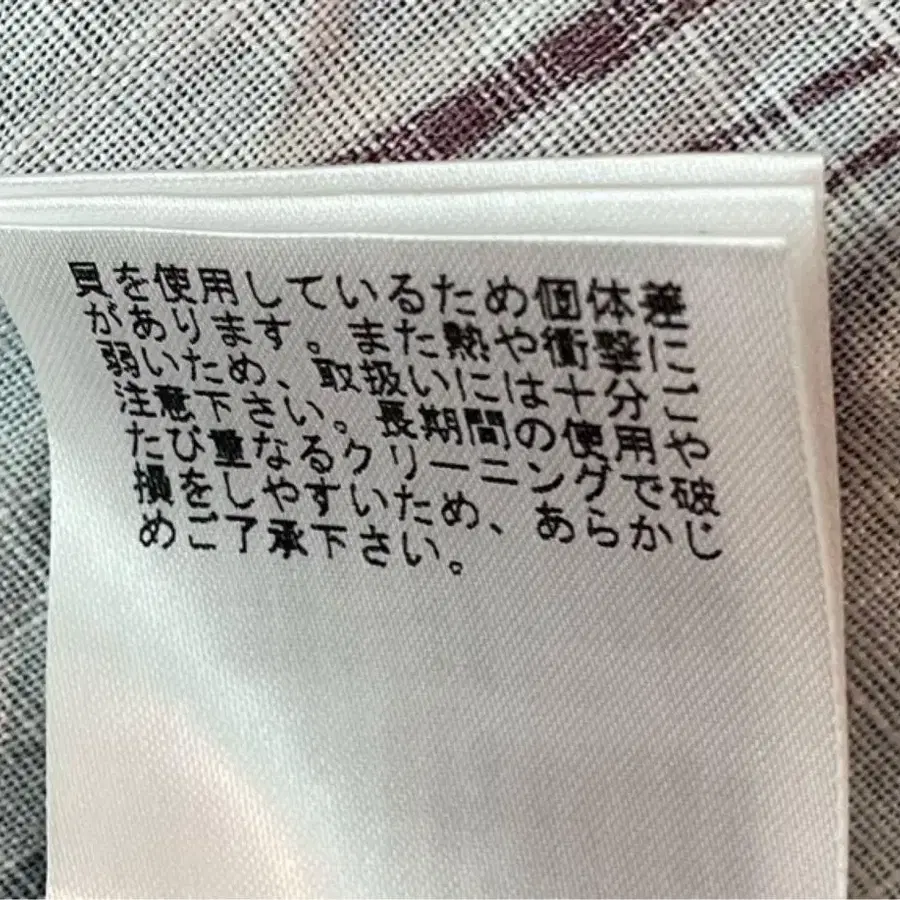 貝を使用しているため個体差
があります。また熱や衝撃に
弱いため、取扱いには十分ご
注意下さい。長期間の使用や
たび重なるクリーニングで破
損をしやすいため、あらかじ
めご了承下さい。